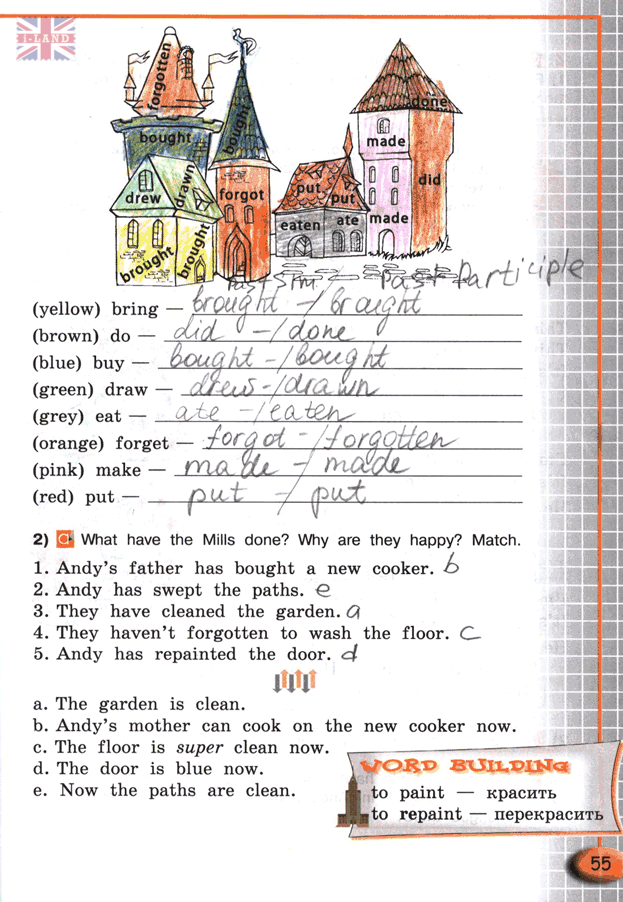 i-LAND
forgotten
bought
bought
done
made
drew
drawn
forgot
put
put
did
brought
brought
eaten
ate
made
Past Sim / Past Participle
(yellow) bring — brought -/ brought
(brown) do — did -/ done
(blue) buy — bought -/ bought
(green) draw — drew -/ drawn
(grey) eat — ate -/ eaten
(orange) forget — forgot -/ forgotten
(pink) make — made -/ made
(red) put — put -/ put
2) What have the Mills done? Why are they happy? Match.
1. Andy's father has bought a new cooker. b
2. Andy has swept the paths. e
3. They have cleaned the garden. a
4. They haven't forgotten to wash the floor. c
5. Andy has repainted the door. d
a. The garden is clean.
b. Andy's mother can cook on the new cooker now.
c. The floor is super clean now.
d. The door is blue now.
e. Now the paths are clean.
WORD BUILDING
to paint — красить
to repaint — перекрасить
55